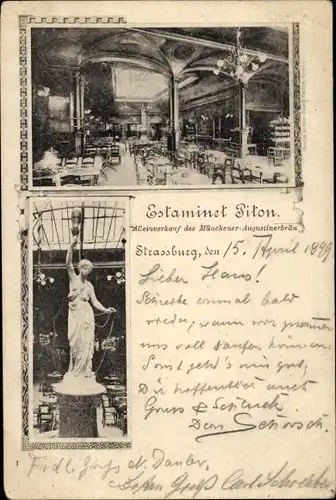 Estaminet Piton.
Alleinverkauf des Münchener-Augustinerbräu
Strassburg, den 15. April 1899
Lieber Hans!
Schreibe einmal bald
wieder, wann wir zusammen
uns voll saufen können.
Sonst geht's mir gut,
Dir hoffentlich auch
Gruss &
Dein
Frdl. Gruss
Besten Gruß Carl